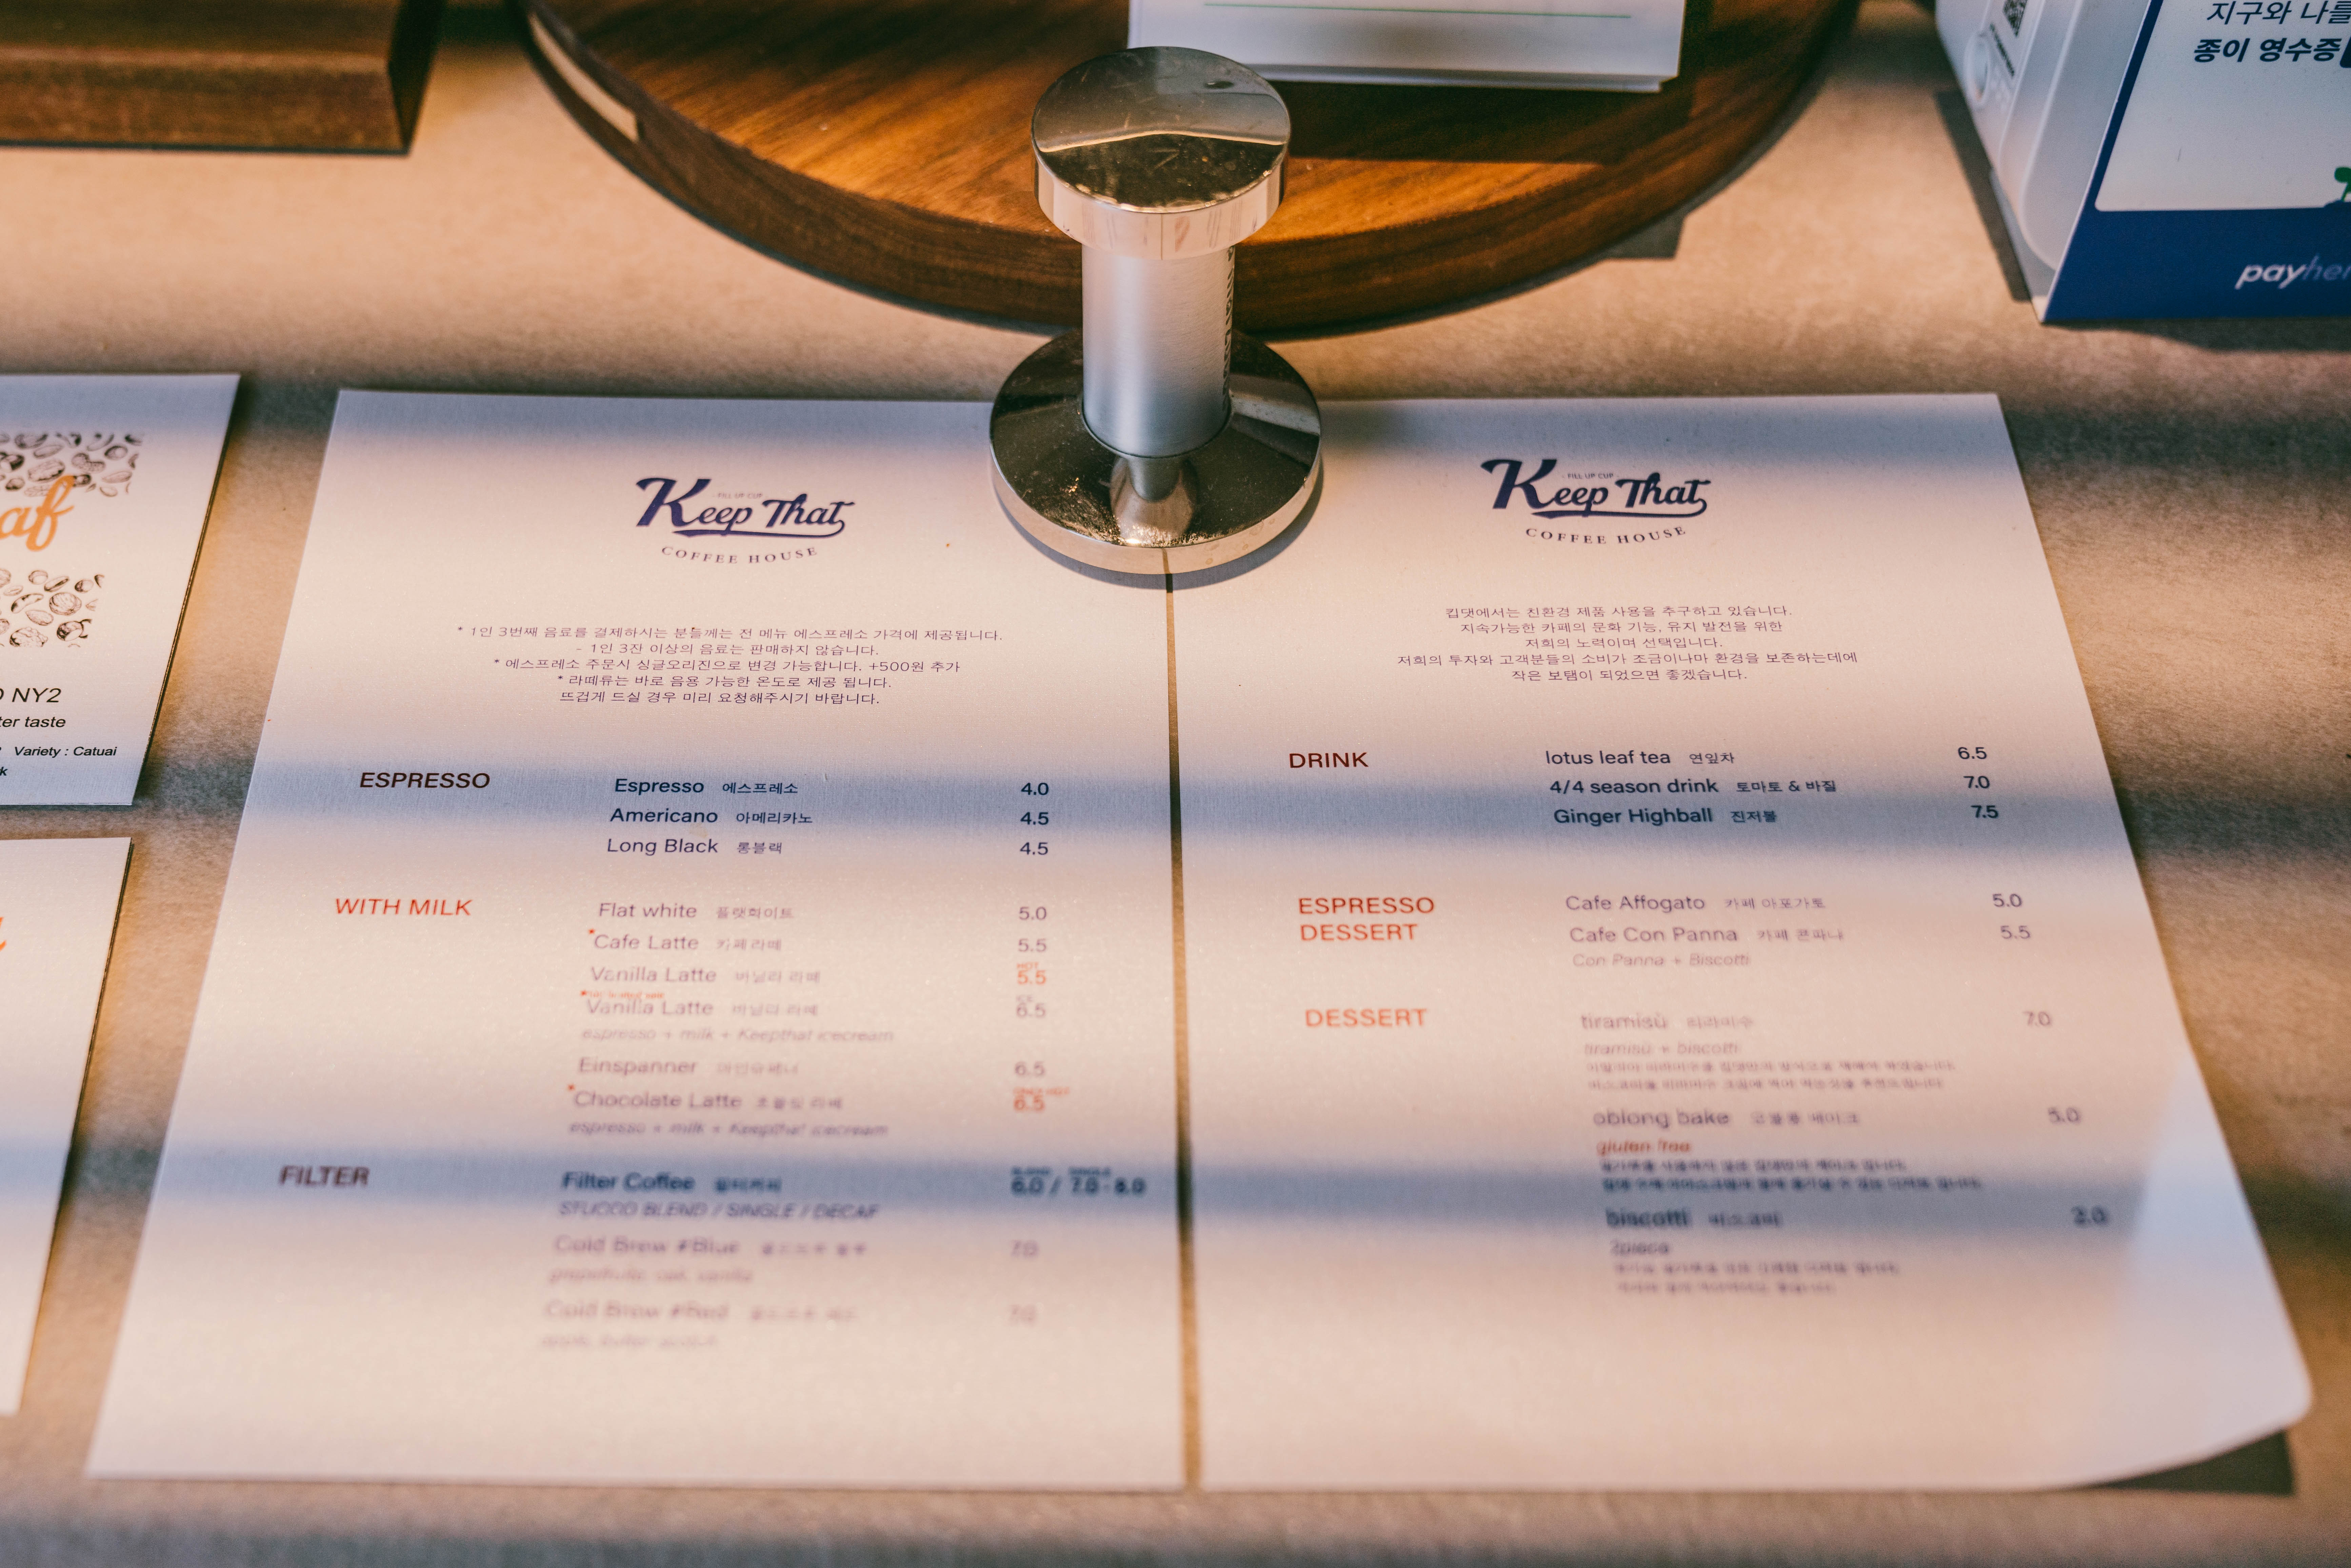 지구와 나를
종이 영수증
payher
af
NY2
ter taste
Variety : Catuai
FILL UP CUP
Keep That
COFFEE HOUSE
* 1인 3번째 음료를 결제하시는 분들께는 전 메뉴 에스프레소 가격에 제공됩니다.
- 1인 3잔 이상의 음료는 판매하지 않습니다.
* 에스프레소 주문시 싱글오리진으로 변경 가능합니다. +500원 추가
* 라떼류는 바로 음용 가능한 온도로 제공 됩니다.
뜨겁게 드실 경우 미리 요청해주시기 바랍니다.
ESPRESSO
Espresso 에스프레소 4.0
Americano 아메리카노 4.5
Long Black 롱블랙 4.5
WITH MILK
Flat white 플랫화이트 5.0
*Cafe Latte 카페라떼 5.5
Vanilla Latte 바닐라 라떼 HOT 5.5
*Vanilla Latte 바닐라 라떼 6.5
espresso + milk + Keepthat icecream
Einspanner 아인슈페너 6.5
*Chocolate Latte 초콜릿 라떼 ONLY HOT 6.5
espresso + milk + Keepthat icecream
FILTER
Filter Coffee 필터커피 BLEND SINGLE 6.0 / 7.0 - 8.0
STUCCO BLEND / SINGLE / DECAF
Cold Brew #Blue 콜드브루 블루 7.0
Cold Brew #Red 콜드브루 레드 7.0
FILL UP CUP
Keep That
COFFEE HOUSE
킵댓에서는 친환경 제품 사용을 추구하고 있습니다.
지속가능한 카페의 문화 기능, 유지 발전을 위한
저희의 노력이며 선택입니다.
저희의 투자와 고객분들의 소비가 조금이나마 환경을 보존하는데에
작은 보탬이 되었으면 좋겠습니다.
DRINK
lotus leaf tea 연잎차 6.5
4/4 season drink 토마토 & 바질 7.0
Ginger Highball 진저볼 7.5
ESPRESSO
DESSERT
Cafe Affogato 카페 아포가토 5.0
Cafe Con Panna 카페 콘파나 5.5
Con Panna + Biscotti
DESSERT
tiramisù 티라미수 7.0
tiramisù + biscotti
oblong bake 오블롱 베이크 5.0
gluten free
biscotti 비스코티 2.0
2piece